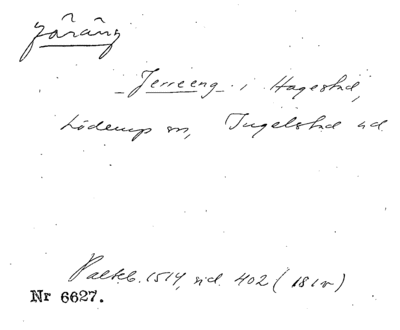 Järäng
Jerreeng i Hagestad,
Löderup sn, Ingelstad hd.
Palteb. 1514, sid. 402 (181v)
Nr 6627.